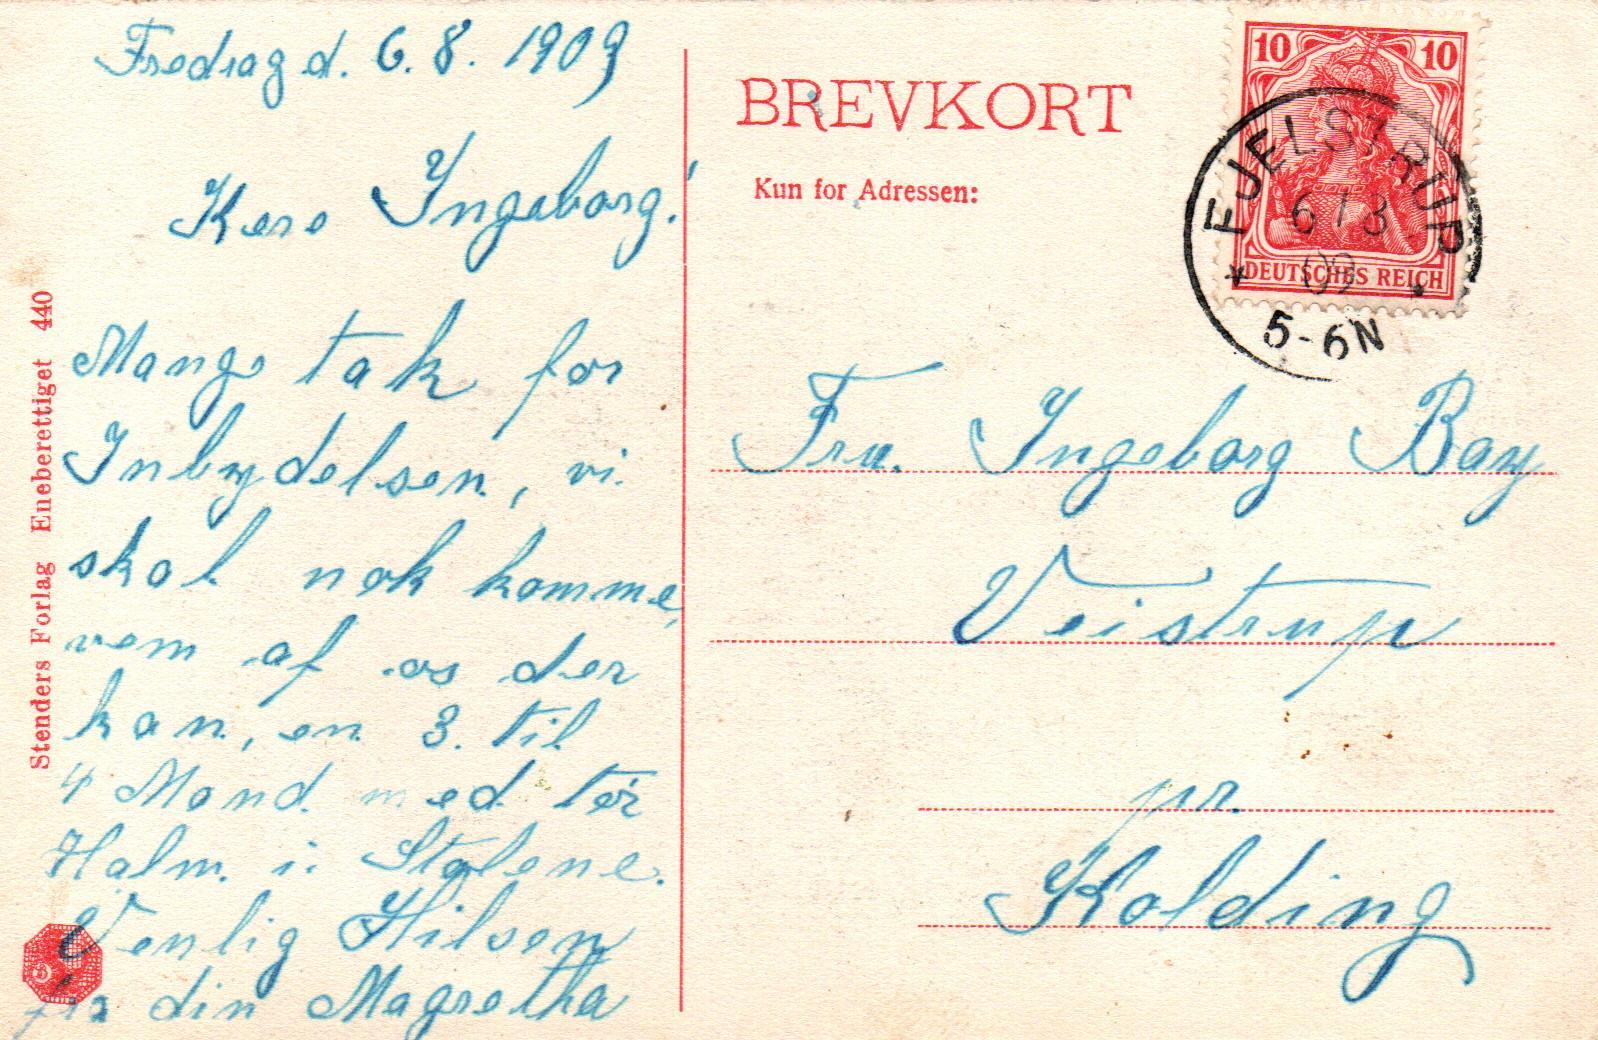 Fredag d. 6. 8. 1909
Kere Ingeborg!
Mange tak for
Inbydelsen, vi
skal nok komme,
vem af os der
kan, en 3. til
4 Mand med tør
Halm i Stølene.
Venlig Hilsen
fra din Magretha
Stenders Forlag Eneberettiget 440
BREVKORT
Kun for Adressen:
10 10
DEUTSCHES REICH
FJELSTRUP
6/8
09
5-6N
Fru. Ingeborg Bay
Veistrup
pr.
Kolding